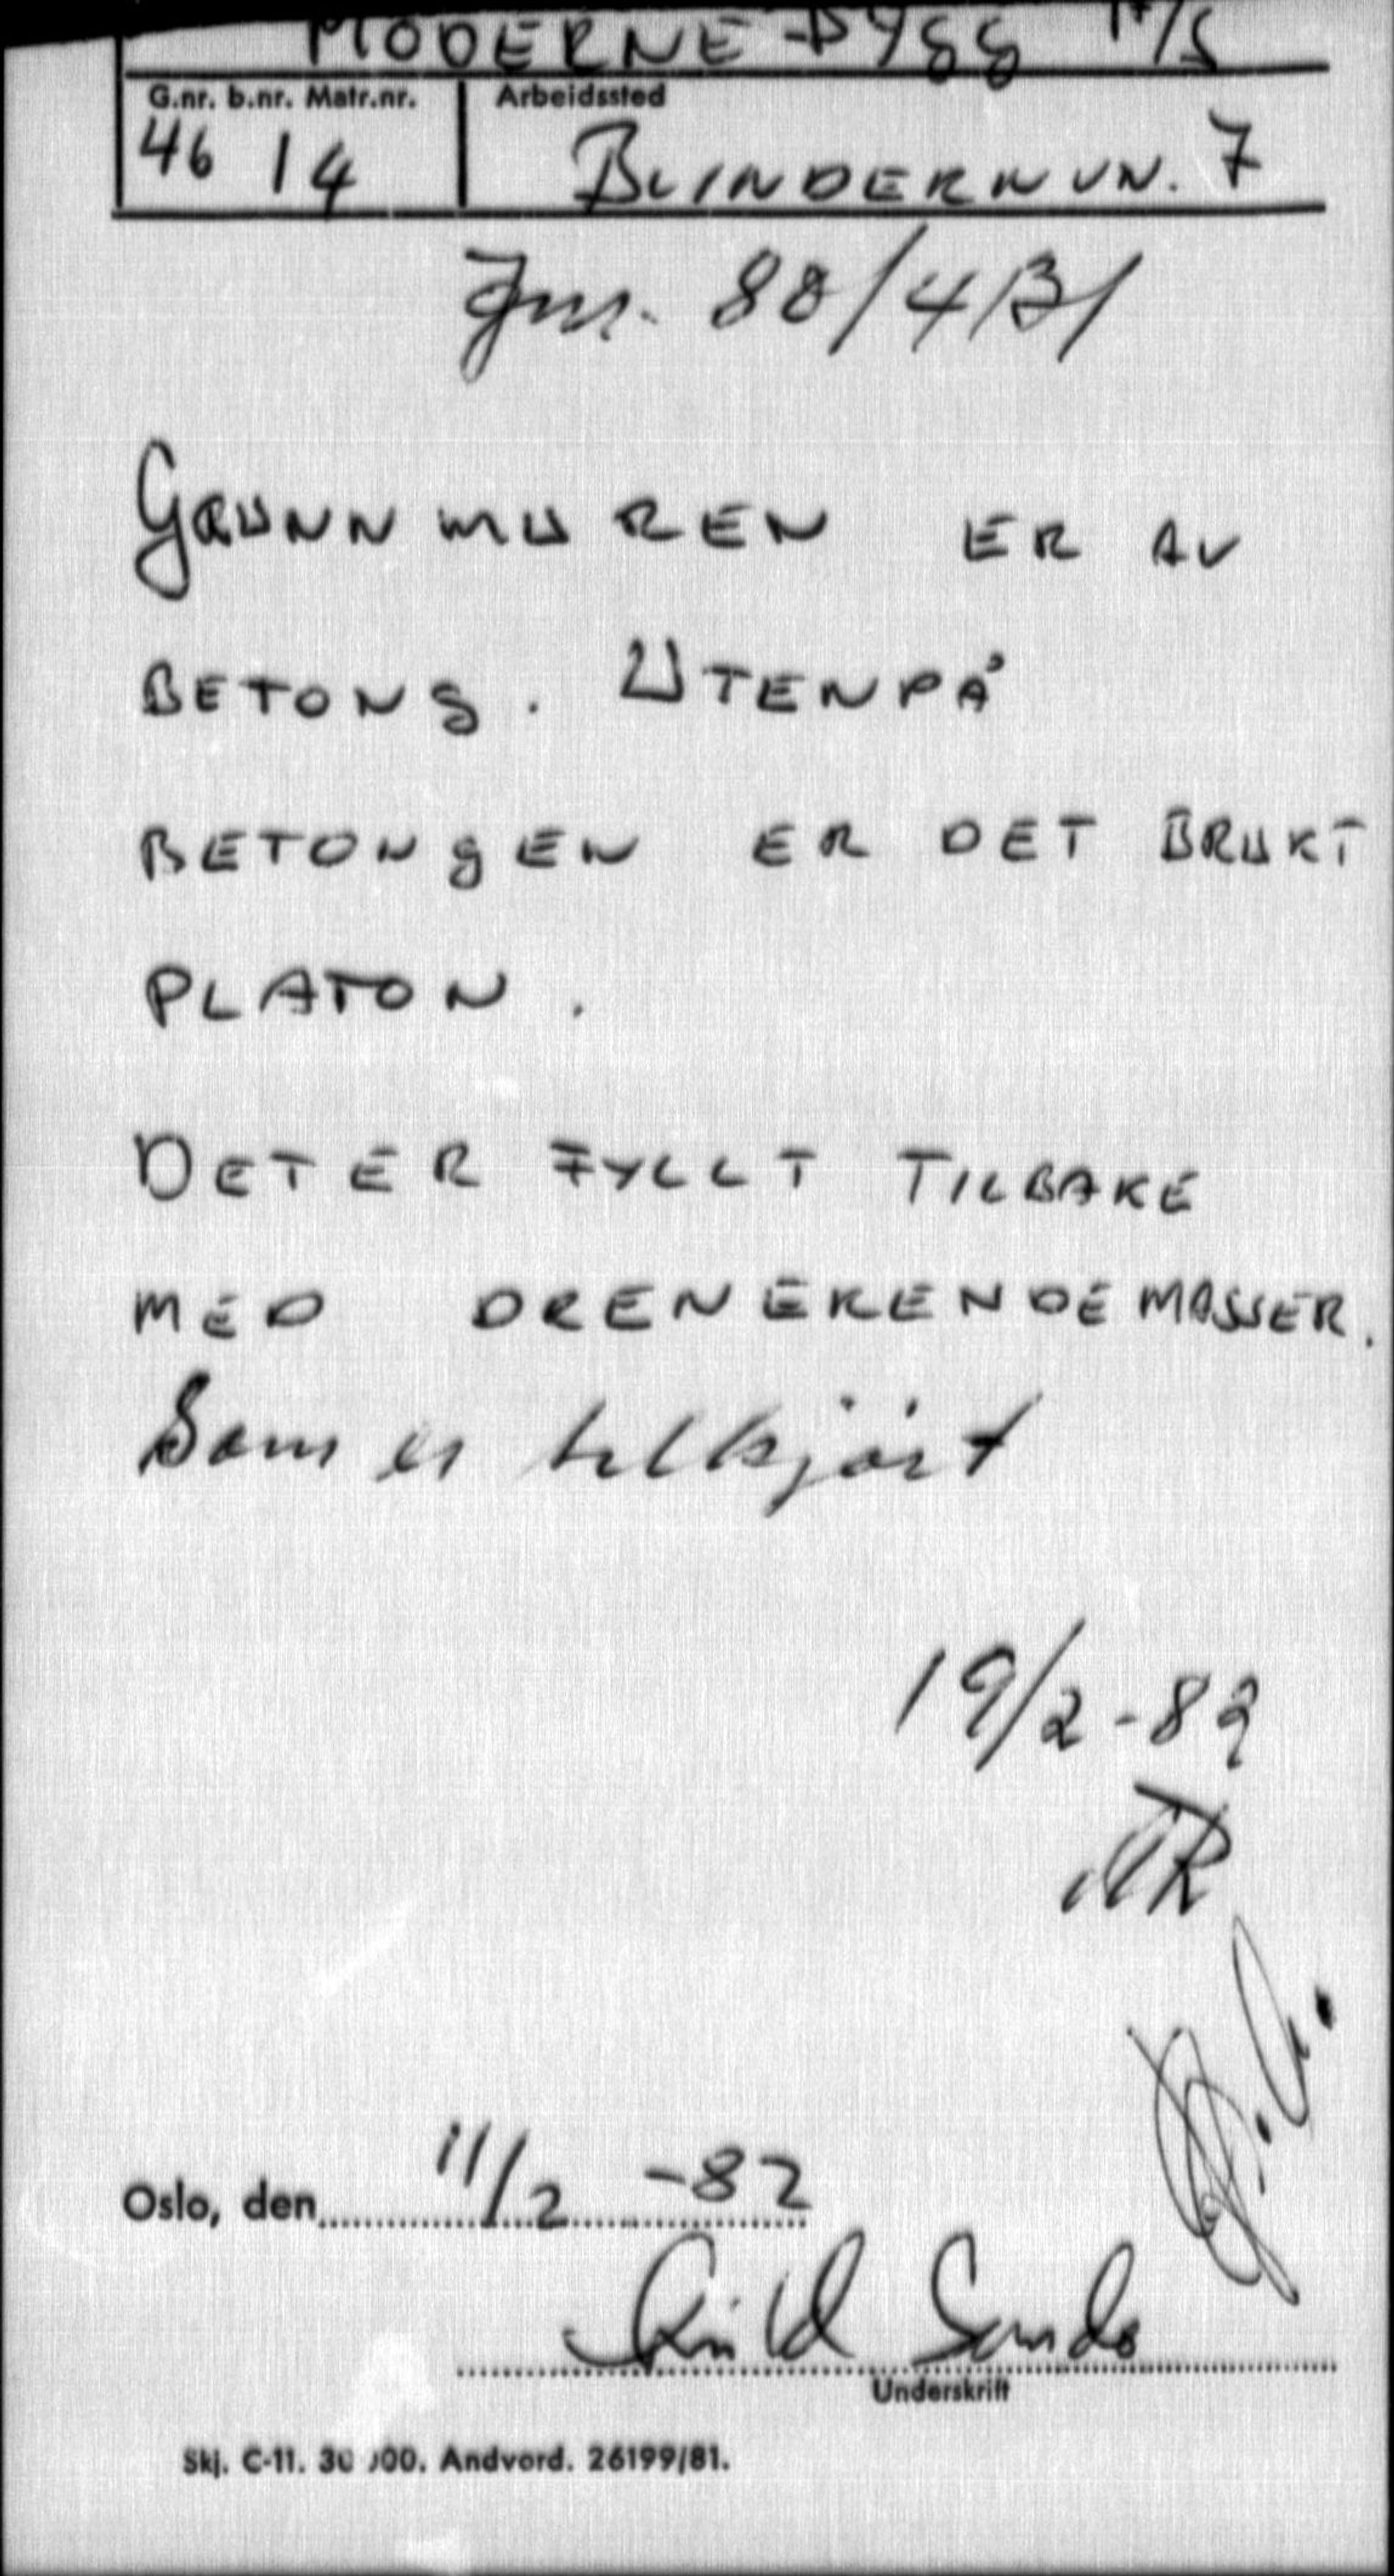 MODERNE BYGG A/S
G.nr. b.nr. Matr.nr. Arbeidssted
46 14 BLINDERNVN. 7
Jnr. 88/4 B1
GRUNNMUREN ER AV
BETONG. UTENPÅ
BETONGEN ER DET BRUKT
PLATON.
DET ER FYLLT TILBAKE
MED DRENERENDE MASSER.
Som er tilkjørt
19/2-82
Oslo, den 11/2 -82
Underskrift
Skj. C-11. 30 000. Andvord. 26199/81.